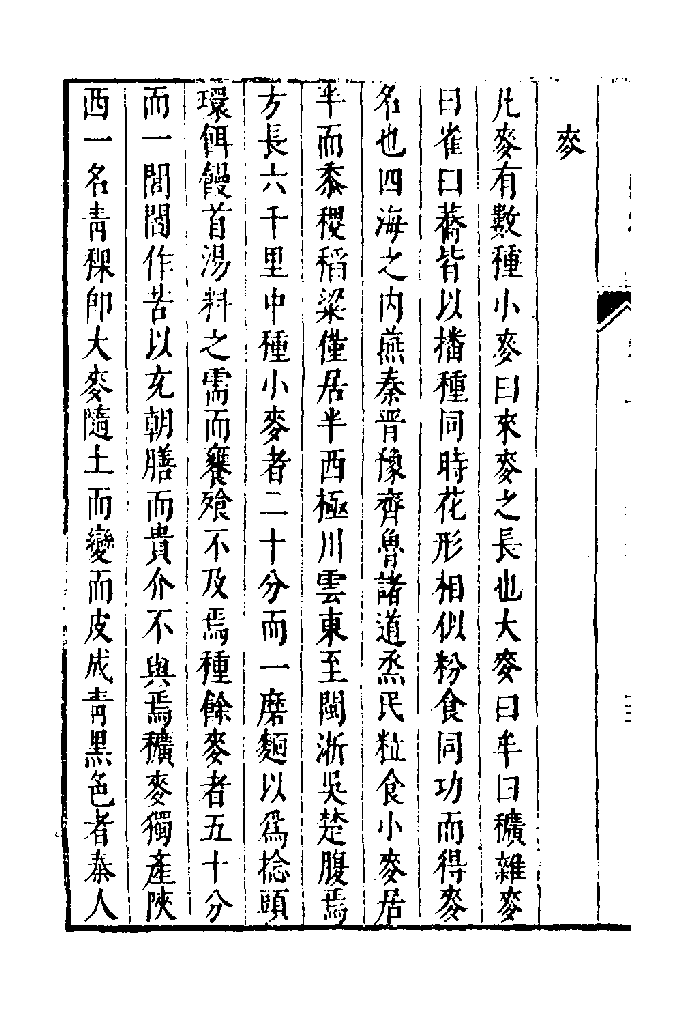 麥
凡麥有數種小麥曰來麥之長也大麥曰牟曰穬雜麥
曰雀曰蕎皆以播種同時花形相似粉食同功而得麥
名也四海之內燕秦晉豫齊魯諸道烝民粒食小麥居
半而黍稷稻粱僅居半西極川雲東至閩浙吳楚腹焉
方長六千里中種小麥者二十分而一磨麵以爲捻頭
環餌饅首湯料之需而饔飱不及焉種餘麥者五十分
而一閭閻作苦以充朝膳而貴介不與焉穬麥獨產陝
西一名青稞卽大麥隨土而變而皮成青黑色者秦人